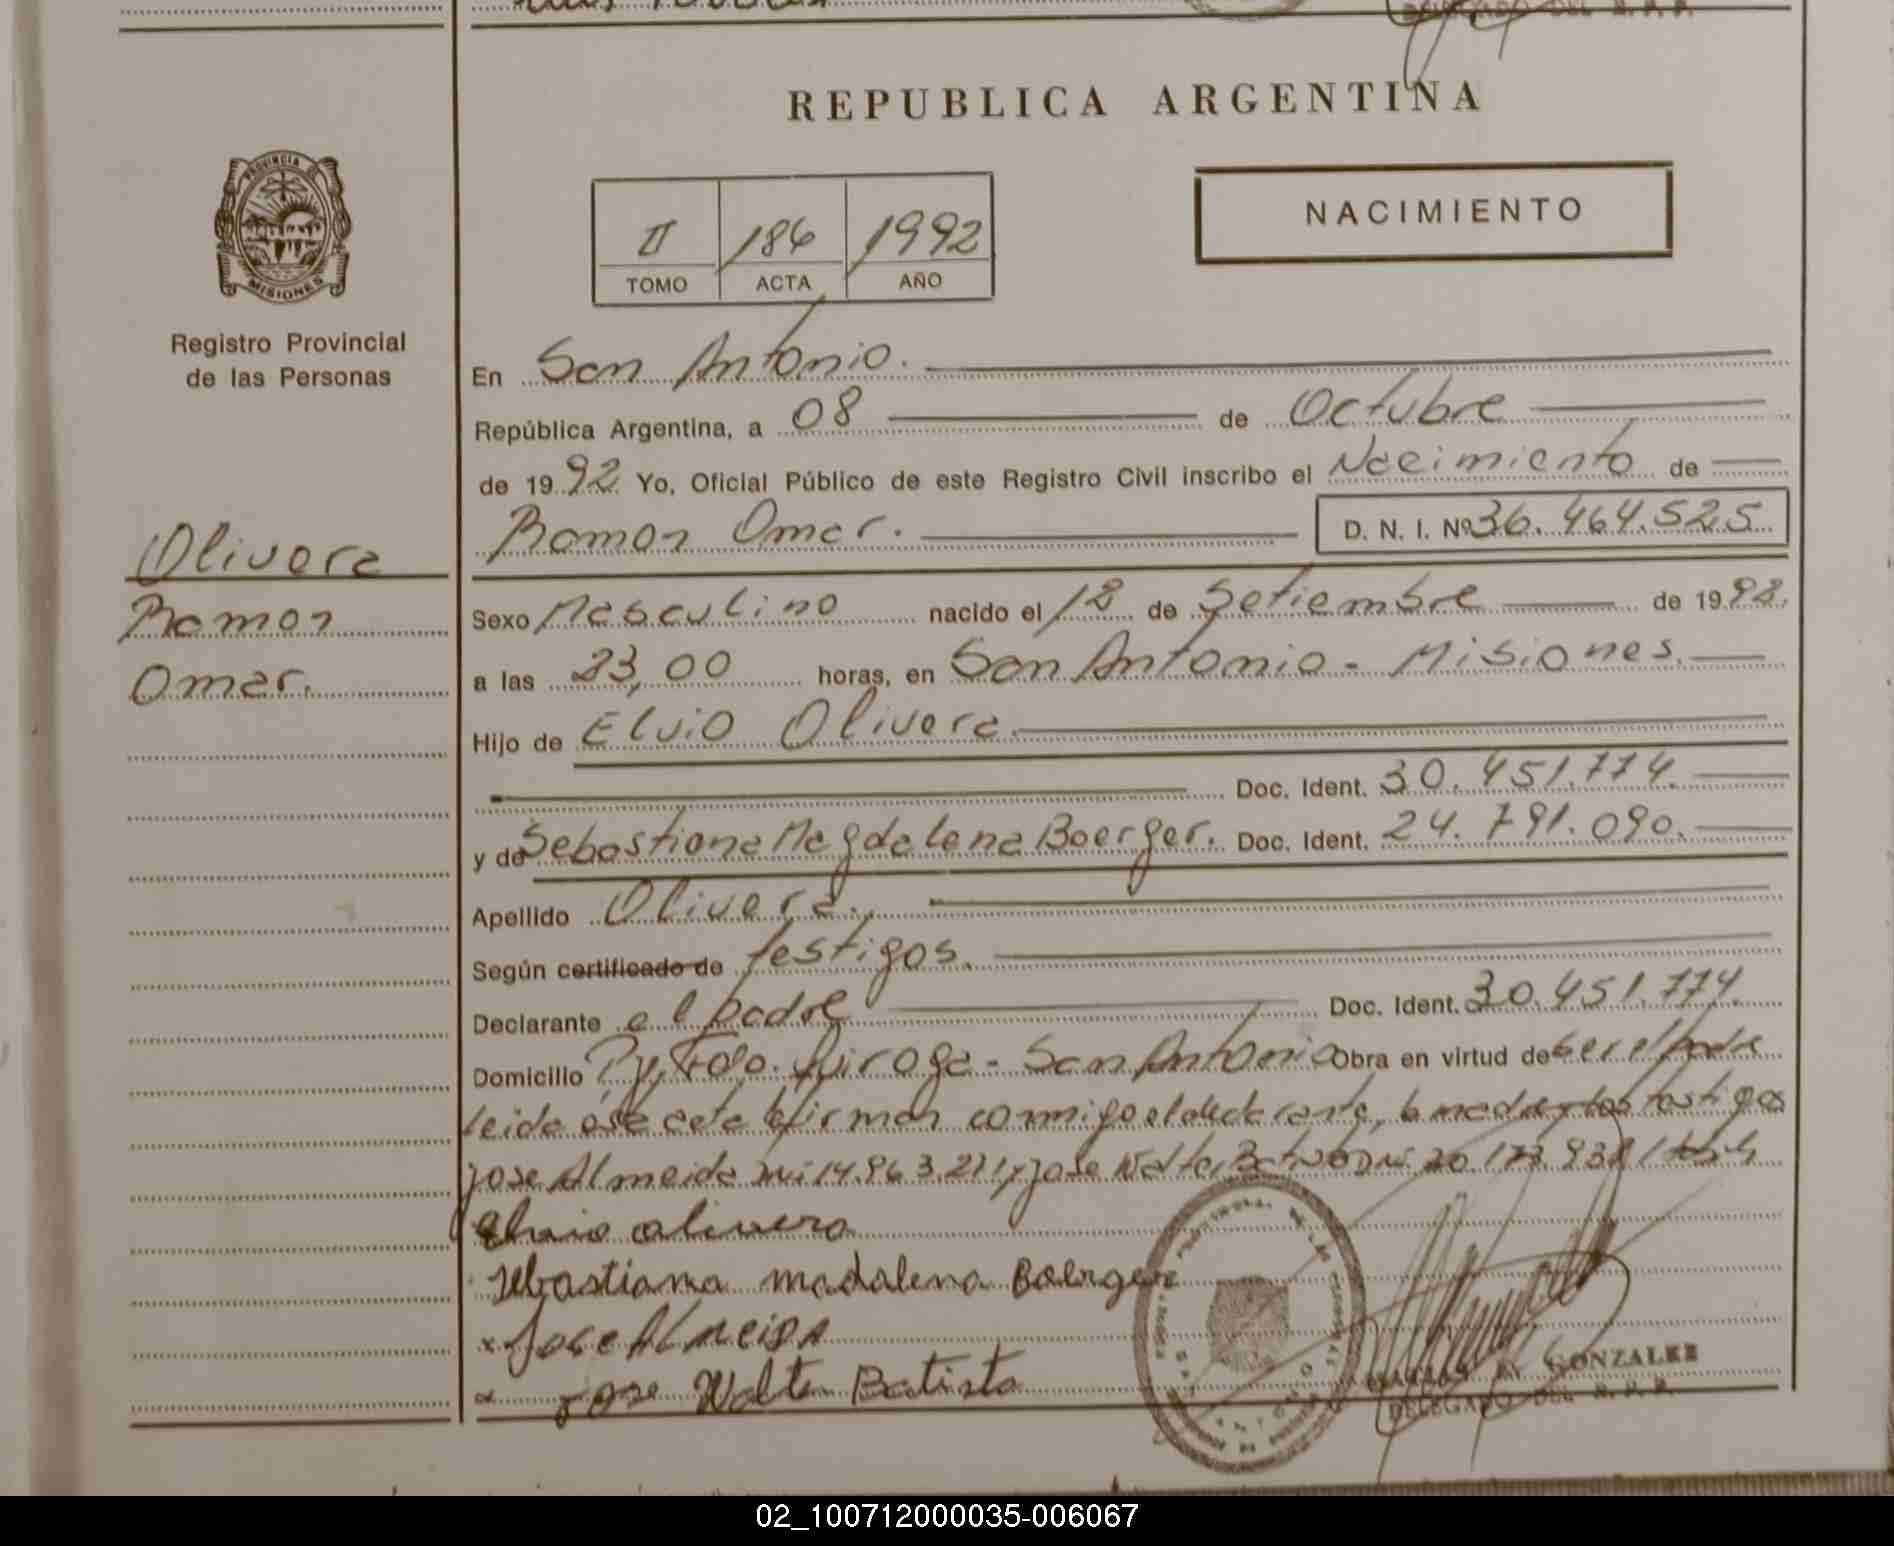 REPUBLICA ARGENTINA
PROVINCIA DE
MISIONES
Registro Provincial
de las Personas
II 186 1992
TOMO ACTA AÑO
NACIMIENTO
Olivera
Ramon
Omar.
En San Antonio.
República Argentina, a 08 de Octubre
de 1992 Yo, Oficial Público de este Registro Civil inscribo el Nacimiento de
Ramon Omar. D. N. I. Nº 36.464.525
Sexo Masculino nacido el 12 de Setiembre de 1992.
a las 23,00 horas, en San Antonio - Misiones.
Hijo de Elvio Olivera
Doc. Ident. 30.451.774.
y de Sebastiana Magdalena Boerger. Doc. Ident. 24.791.090.
Apellido Olivera.
Según certificado de testigos.
Declarante el padre Doc. Ident. 30.451.774.
Domicilio Pje. Fdo. Quiroga - San Antonio Obra en virtud de ser el padre
leida este acta firman conmigo el declarante, la madre y los testigos
Jose Almeida y Jose Walter
Elvio olivera
Sebastiana madalena Boerger
x Jose Almeida
x Jose Walter Batista
GONZALEZ
DELEGADO DEL R. P. P.
02_100712000035-006067